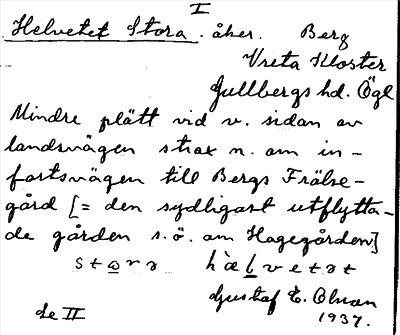 I
Helvetet Stora. åker. Berg
Vreta Kloster
Gullbergs hd. Ögl
Mindre plätt vid v. sidan av
landsvägen strax n. om in-
fartsvägen till Bergs Frälse-
gård [= den sydligast utflytta-
de gården s.ö. om Hagegården]
stωrə hὰlvetət
Gustaf E. Olsson
de II 1937.